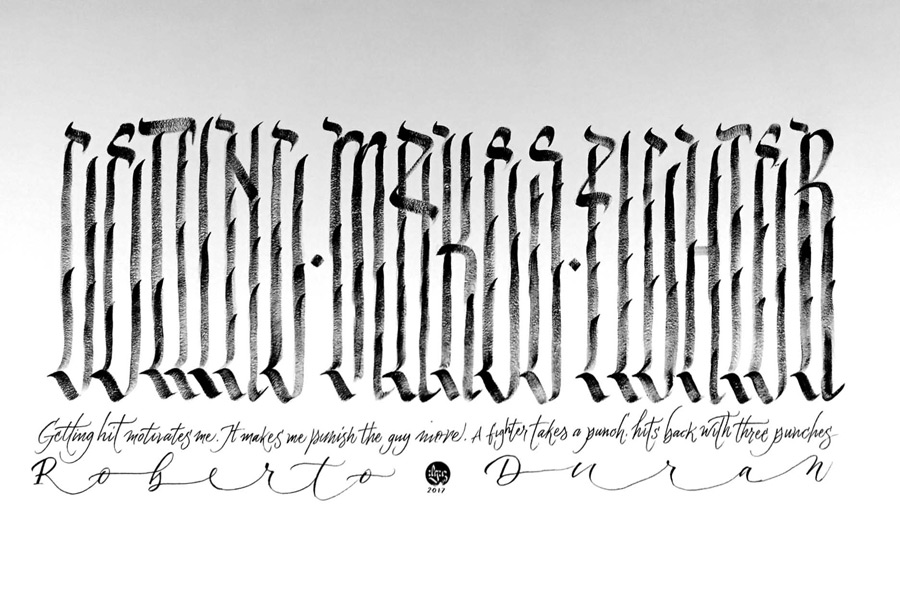 GETTING · MAKES · FIGHTER
Getting hit motivates me. It makes me punish the guy more! A fighter takes a punch, hits back with three punches
Roberto Duran
2017